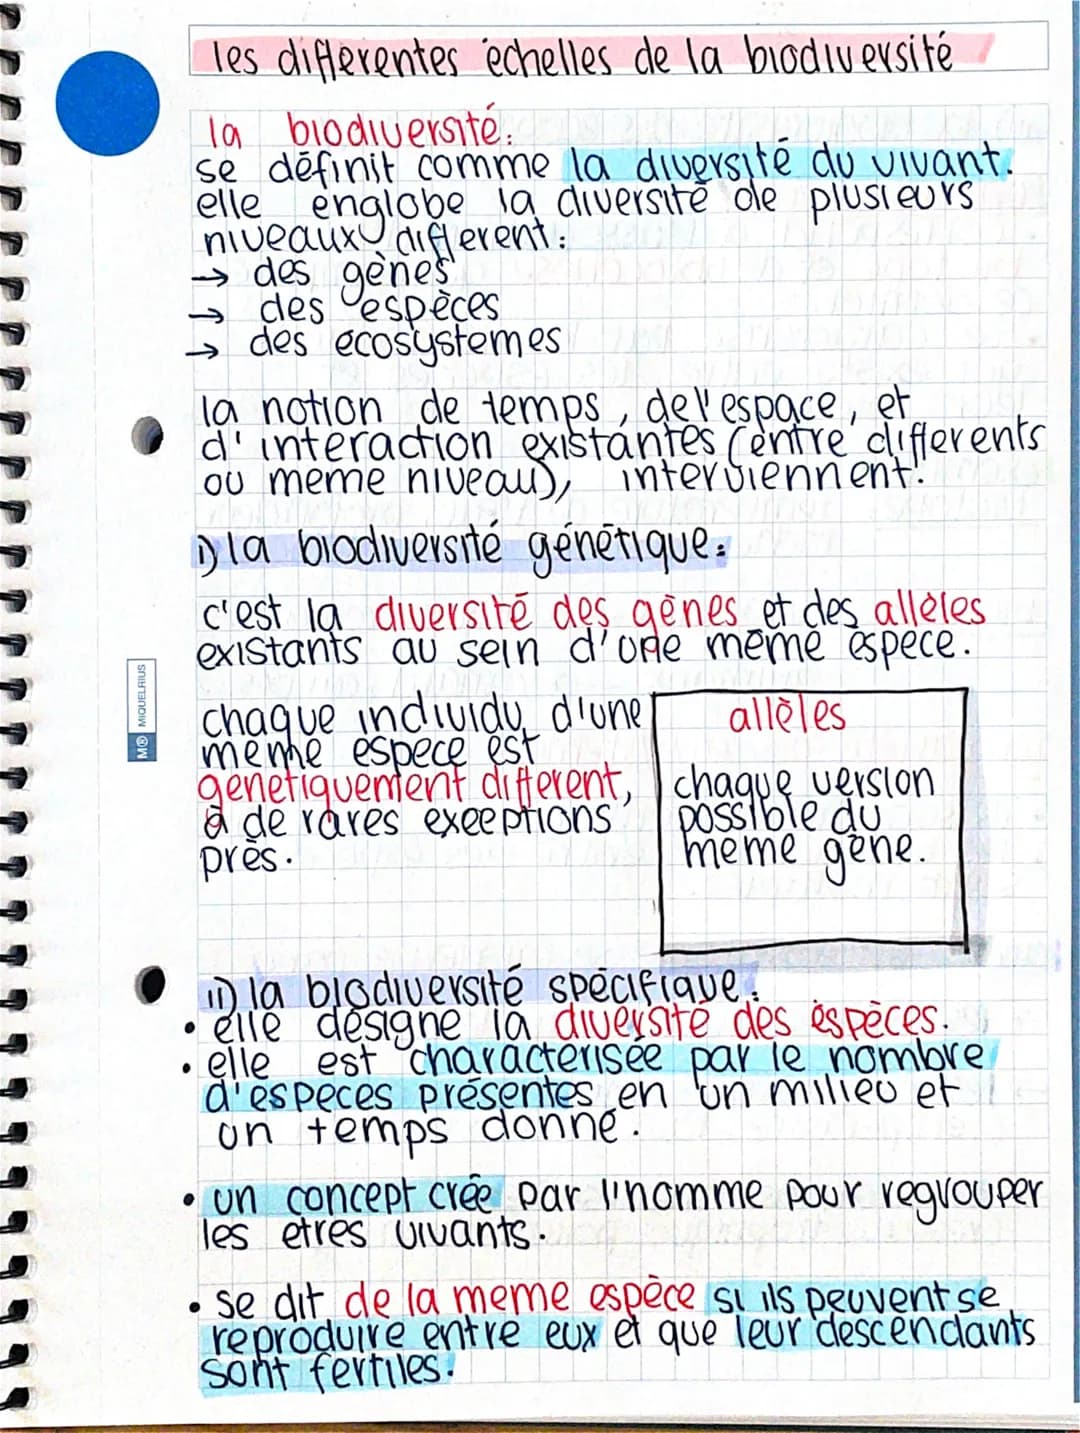 les differentes echelles de la biodiversité
la biodiversité:
se définit comme la diversité du vivant.
elle englobe la diversité de plusieurs
niveaux different:
→ des gènes
→ des espèces
→ des ecosystemes
la notion de temps, de l'espace, et
d'interaction existantes (entre differents
ou meme niveau), interviennent.
i) la biodiversité génétique:
c'est la diversité des gènes et des allèles
existants au sein d'une même espece.
chaque individu d'une
meme espece est
genetiquement different,
à de rares exeeptions
près.
allèles
chaque version
possible du
meme gène.
ii) la biodiversité spécifique:
• elle désigne la diversité des espèces.
• elle est characterisée par le nombre
d'especes présentes en un milieu et
un temps donné.
• un concept crée par l'homme pour regrouper
les etres vivants.
• se dit de la meme espèce si ils peuvent se
reproduire entre eux et que leur descendants
sont fertiles.
M® MIQUELRIUS